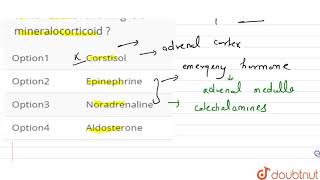 mineralocorticoid ?
Option1 x Corstisol → adrenal cortex
Option2 Epinephrine → emergeny hormone
adrenal medulla
Option3 Noradrenaline → catechalamines
Option4 Aldosterone
doubtnut